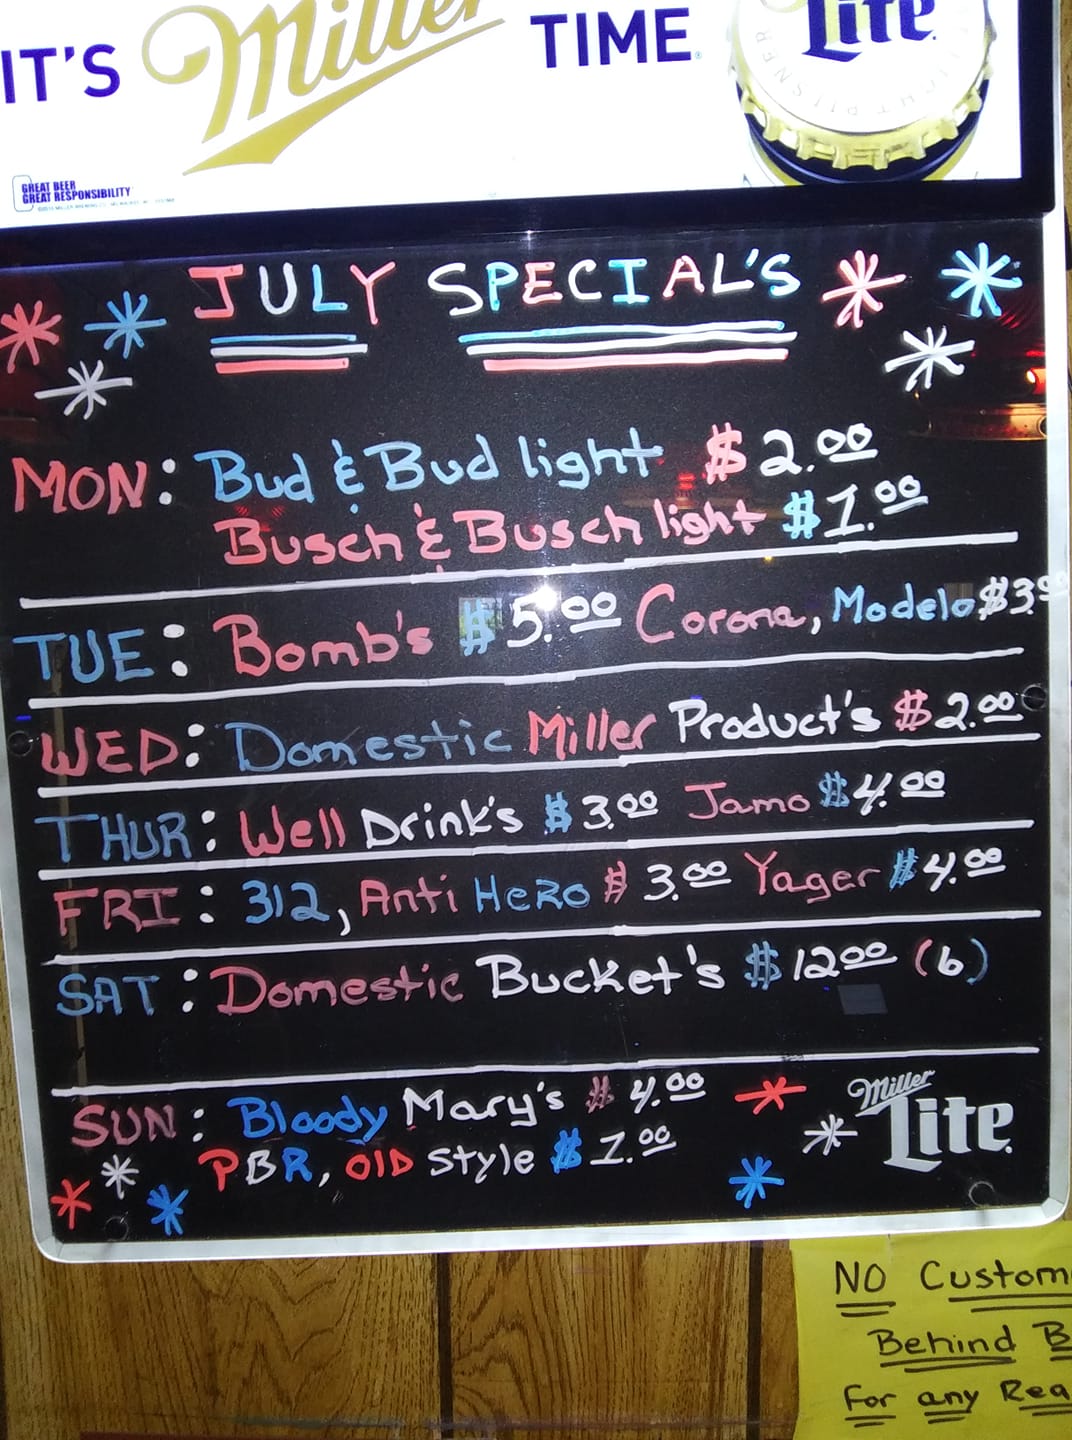 IT'S Miller TIME.
Lite
GREAT BEER
GREAT RESPONSIBILITY
JULY SPECIAL'S
MON: Bud & Bud light $2.00
Busch & Busch light $1.00
TUE: Bomb's $5.00 Corona, Modelo $3.00
WED: Domestic Miller Product's $2.00
THUR: Well Drink's $3.00 Jamo $4.00
FRI: 312, Anti HeRo $3.00 Yager $4.00
SAT: Domestic Bucket's $12.00 (6)
SUN: Bloody Mary's $4.00
PBR, OlD Style $1.00
Miller
Lite
NO Custom
Behind B
For any Rea